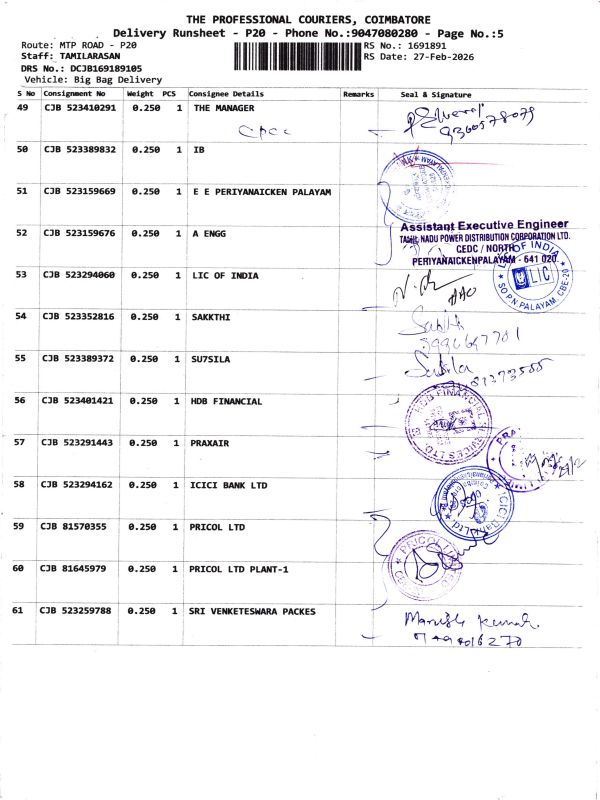 THE PROFESSIONAL COURIERS, COIMBATORE
Delivery Runsheet - P20 - Phone No.:9047080280 - Page No.:5
Route: MTP ROAD - P20
Staff: TAMILARASAN
DRS No.: DCJB169189105
Vehicle: Big Bag Delivery
RS No.: 1691891
RS Date: 27-Feb-2026
S No Consignment No Weight PCS Consignee Details Remarks Seal & Signature
49 CJB 523410291 0.250 1 THE MANAGER
9360578079
50 CJB 523389832 0.250 1 IB
51 CJB 523159669 0.250 1 E E PERIYANAICKEN PALAYAM
52 CJB 523159676 0.250 1 A ENGG
Assistant Executive Engineer
TAMIL NADU POWER DISTRIBUTION CORPORATION LTD.
CEDC / NORTH
PERIYANAICKENPALAYAM - 641 020.
53 CJB 523294060 0.250 1 LIC OF INDIA
LIC OF INDIA
LIC
SO P.N PALAYAM, CBE-20
54 CJB 523352816 0.250 1 SAKKTHI
55 CJB 523389372 0.250 1 SU7SILA
Susila
56 CJB 523401421 0.250 1 HDB FINANCIAL
HDB FINANCIAL SERVICES LTD
57 CJB 523291443 0.250 1 PRAXAIR
PRA
58 CJB 523294162 0.250 1 ICICI BANK LTD
ICICI Bank Ltd
59 CJB 81570355 0.250 1 PRICOL LTD
PRICOL LIMITED
60 CJB 81645979 0.250 1 PRICOL LTD PLANT-1
61 CJB 523259788 0.250 1 SRI VENKETESWARA PACKES
Manish Kumar.